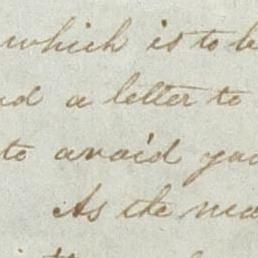 which is to b
nd a letter to
to avoid you
As the